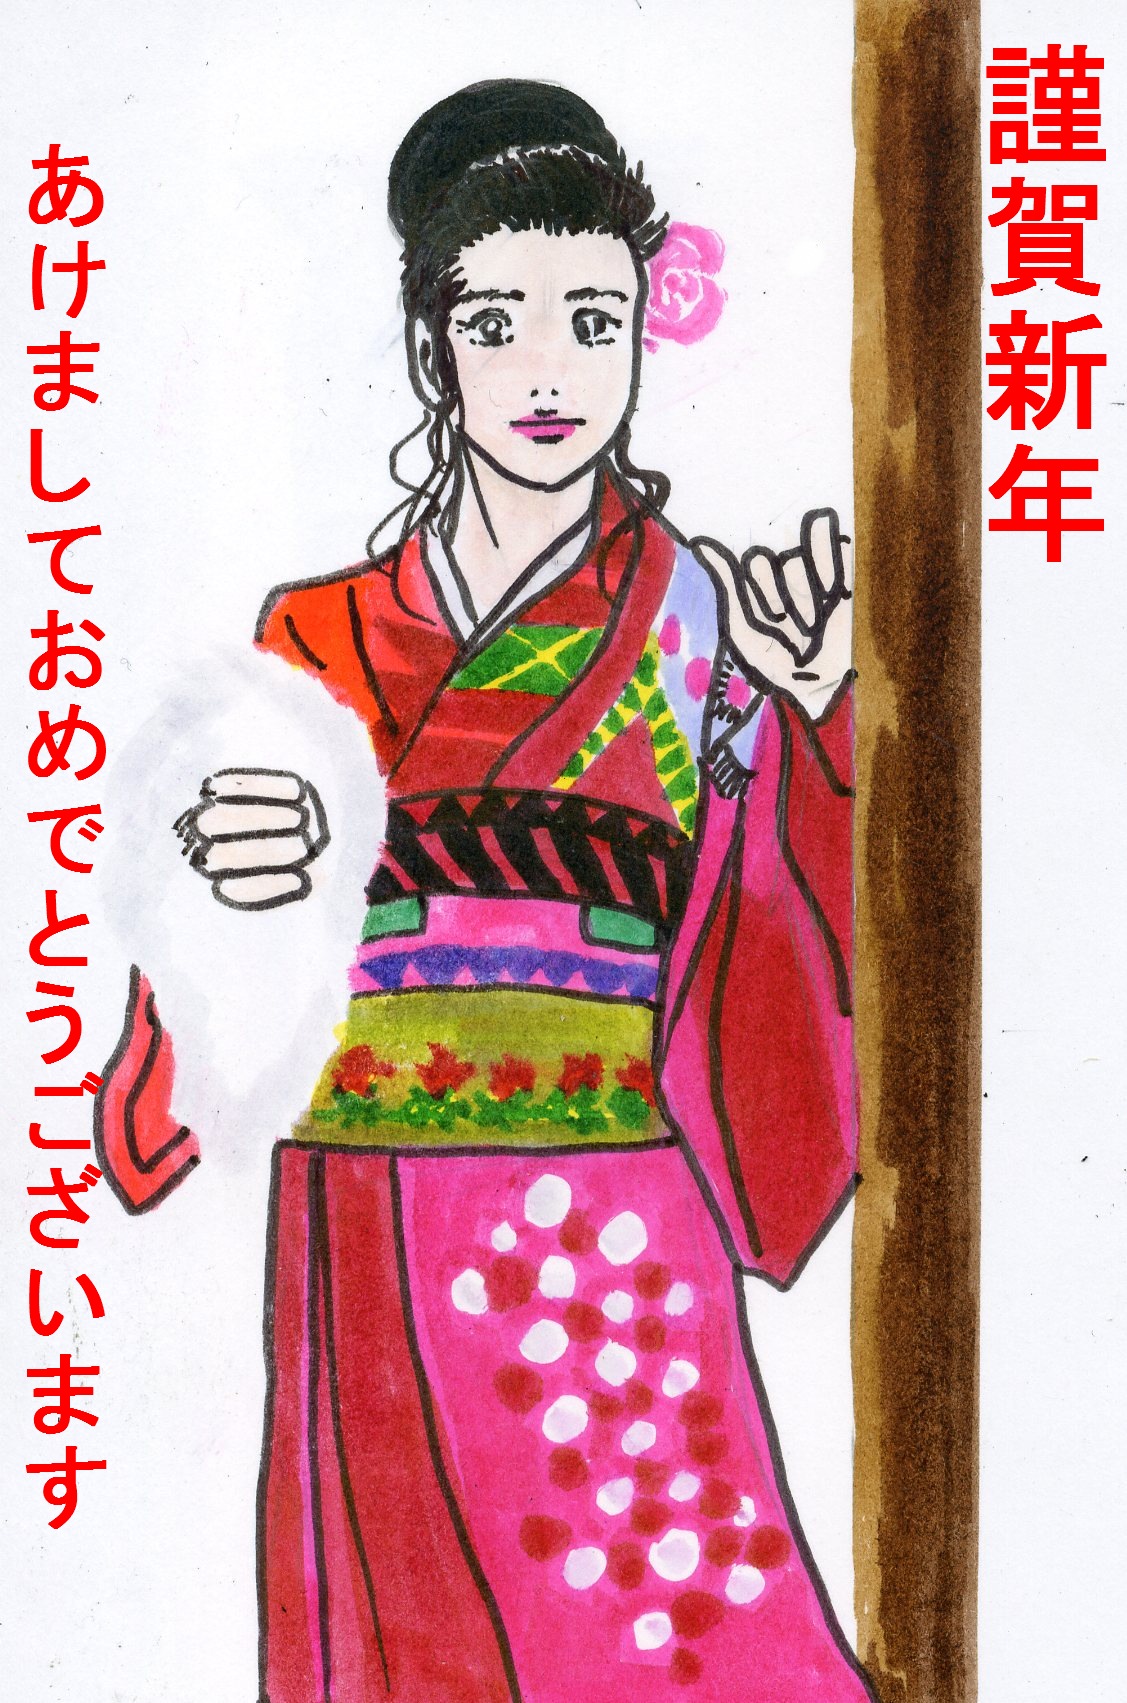 謹賀新年
あけましておめでとうございます